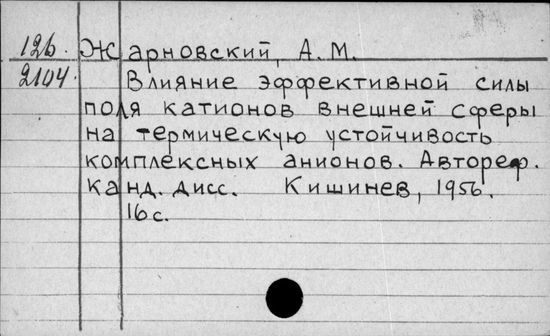 126. Жарновский, А. М.
2104. Влияние эффективной силы
поля катионов внешней сферы
на термическую устойчивость
комплексных анионов. Автореф.
канд. дисс. Кишинев, 1956.
16 с.